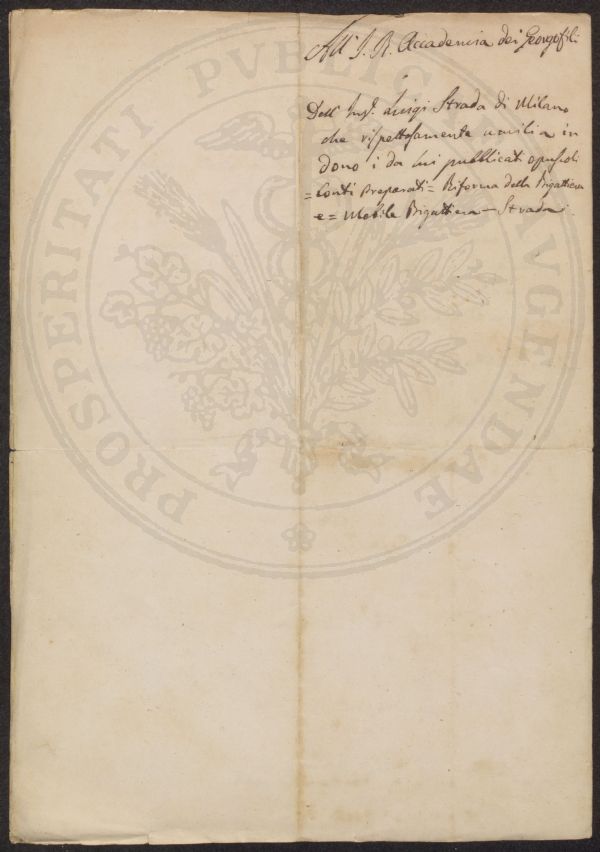 All' I. R. Accademia dei Georgofili
Dell' Ing.r Luigi Strada di Milano
che rispettosamente umilia in
dono i da lui pubblicati opuscoli
= Conti preparati = Riforma della Bigattiera
e = Mobile Bigattiera - Strada.
PROSPERITATI PUBLICAE AVGENDAE